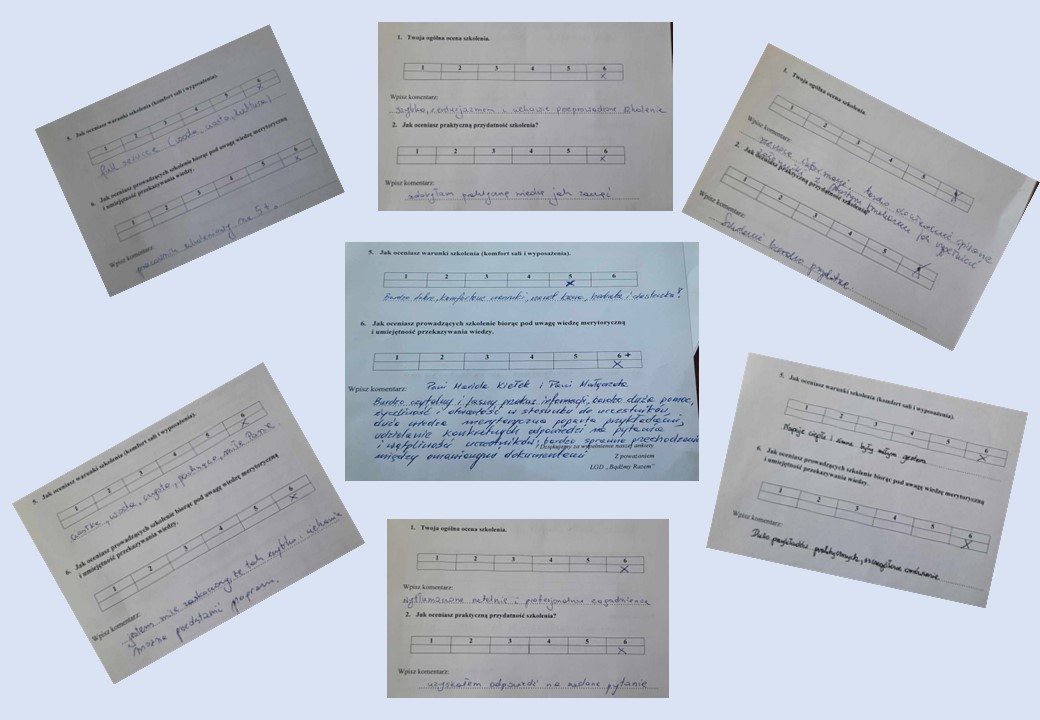 5. Jak oceniasz warunki szkolenia (komfort sali i wyposażenia).
1 2 3 4 5 6
X
full service (woda, kultura)
6. Jak oceniasz prowadzących szkolenie biorąc pod uwagę wiedzę merytoryczną
i umiejętność przekazywania wiedzy.
1 2 3 4 5 6
X
Wpisz komentarz:
na 5+.
1. Twoja ogólna ocena szkolenia.
1 2 3 4 5 6
X
Wpisz komentarz:
szybko, z entuzjazmem i ciekawie przeprowadzone szkolenie
2. Jak oceniasz praktyczną przydatność szkolenia?
1 2 3 4 5 6
X
Wpisz komentarz:
zdobyłam praktyczną wiedzę jak zacząć
1. Twoja ogólna ocena szkolenia.
1 2 3 4 5 6
X
Wpisz komentarz:
informacji, bardzo opisane
2. Jak oceniasz praktyczną przydatność szkolenia?
jak wypełnić
1 2 3 4 5 6
X
Wpisz komentarz:
Szkolenie bardzo przydatne.
5. Jak oceniasz warunki szkolenia (komfort sali i wyposażenia).
1 2 3 4 5 6
X
Bardzo dobre, komfortowe warunki, nawet kawa, herbata i ciasteczka!
6. Jak oceniasz prowadzących szkolenie biorąc pod uwagę wiedzę merytoryczną
i umiejętność przekazywania wiedzy.
1 2 3 4 5 6 +
X
Wpisz komentarz: Pani Mariola Kiełek i Pani Małgorzata
Bardzo czytelny i jasny przekaz informacji, bardzo duża pomoc,
życzliwość i otwartość w stosunku do uczestników,
duża wiedza merytoryczna poparta przykładami,
udzielanie konkretnych odpowiedzi na pytania
i wątpliwości uczestników; bardzo sprawne przechodzenie
Dziękujemy za wypełnienie naszej ankiety
między omawianymi dokumentami
Z poważaniem
LGD „Bądźmy Razem”
5. Jak oceniasz warunki szkolenia (komfort sali i wyposażenia).
1 2 3 4 5 6
X
woda, czysto, miłe Panie.
6. Jak oceniasz prowadzących szkolenie biorąc pod uwagę wiedzę merytoryczną
i umiejętność przekazywania wiedzy.
1 2 3 4 5 6
X
Wpisz komentarz:
jestem mile zaskoczony, że tak szybko i ciekawie
można przedstawić program.
1. Twoja ogólna ocena szkolenia.
1 2 3 4 5 6
X
Wpisz komentarz:
wytłumaczone rzetelnie i profesjonalnie zagadnienia
2. Jak oceniasz praktyczną przydatność szkolenia?
1 2 3 4 5 6
X
Wpisz komentarz:
uzyskałem odpowiedzi na zadane pytanie
5. Jak oceniasz warunki szkolenia (komfort sali i wyposażenia).
1 2 3 4 5 6
X
Napoje ciepłe i zimne były miłym gestem
6. Jak oceniasz prowadzących szkolenie biorąc pod uwagę wiedzę merytoryczną
i umiejętność przekazywania wiedzy.
1 2 3 4 5 6
X
Wpisz komentarz:
Dużo przykładów praktycznych, szczegółowe omówienie